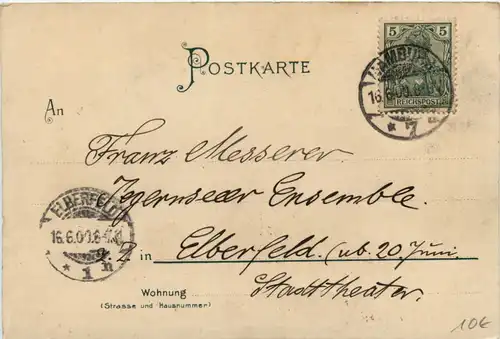 POSTKARTE
5
REICHSPOST
HAMBURG
16.6.00.
* 7
An
Franz Messerer
Tegernseeer Ensemble.
ELBERFELD
16.6.00.6-7.N
* 1 n
z. Z. in Elberfeld. (ab 20 Juni
Stadttheater.
Wohnung
(Strasse und Hausnummer)
10€